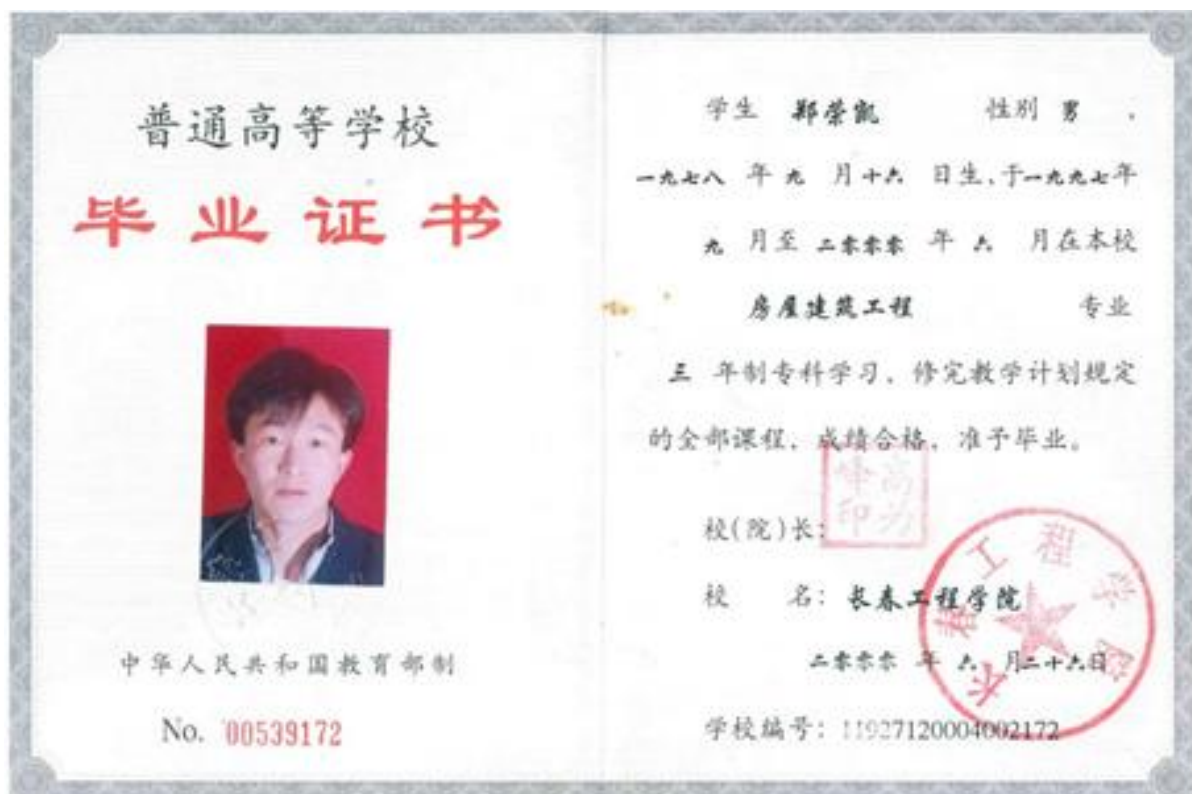 普通高等学校
毕业证书
中华人民共和国教育部制
No. 00539172
学生 郑荣凯 性别 男 ,
一九七八 年 九 月十六 日生,于一九九七年
九 月至 二零零零 年 六 月在本校
房屋建筑工程 专业
三 年制专科学习,修完教学计划规定
的全部课程,成绩合格,准予毕业。
校(院)长:
校 名:长春工程学院
二零零零 年 六 月二十六日
学校编号:11927120004002172
长春工程学院